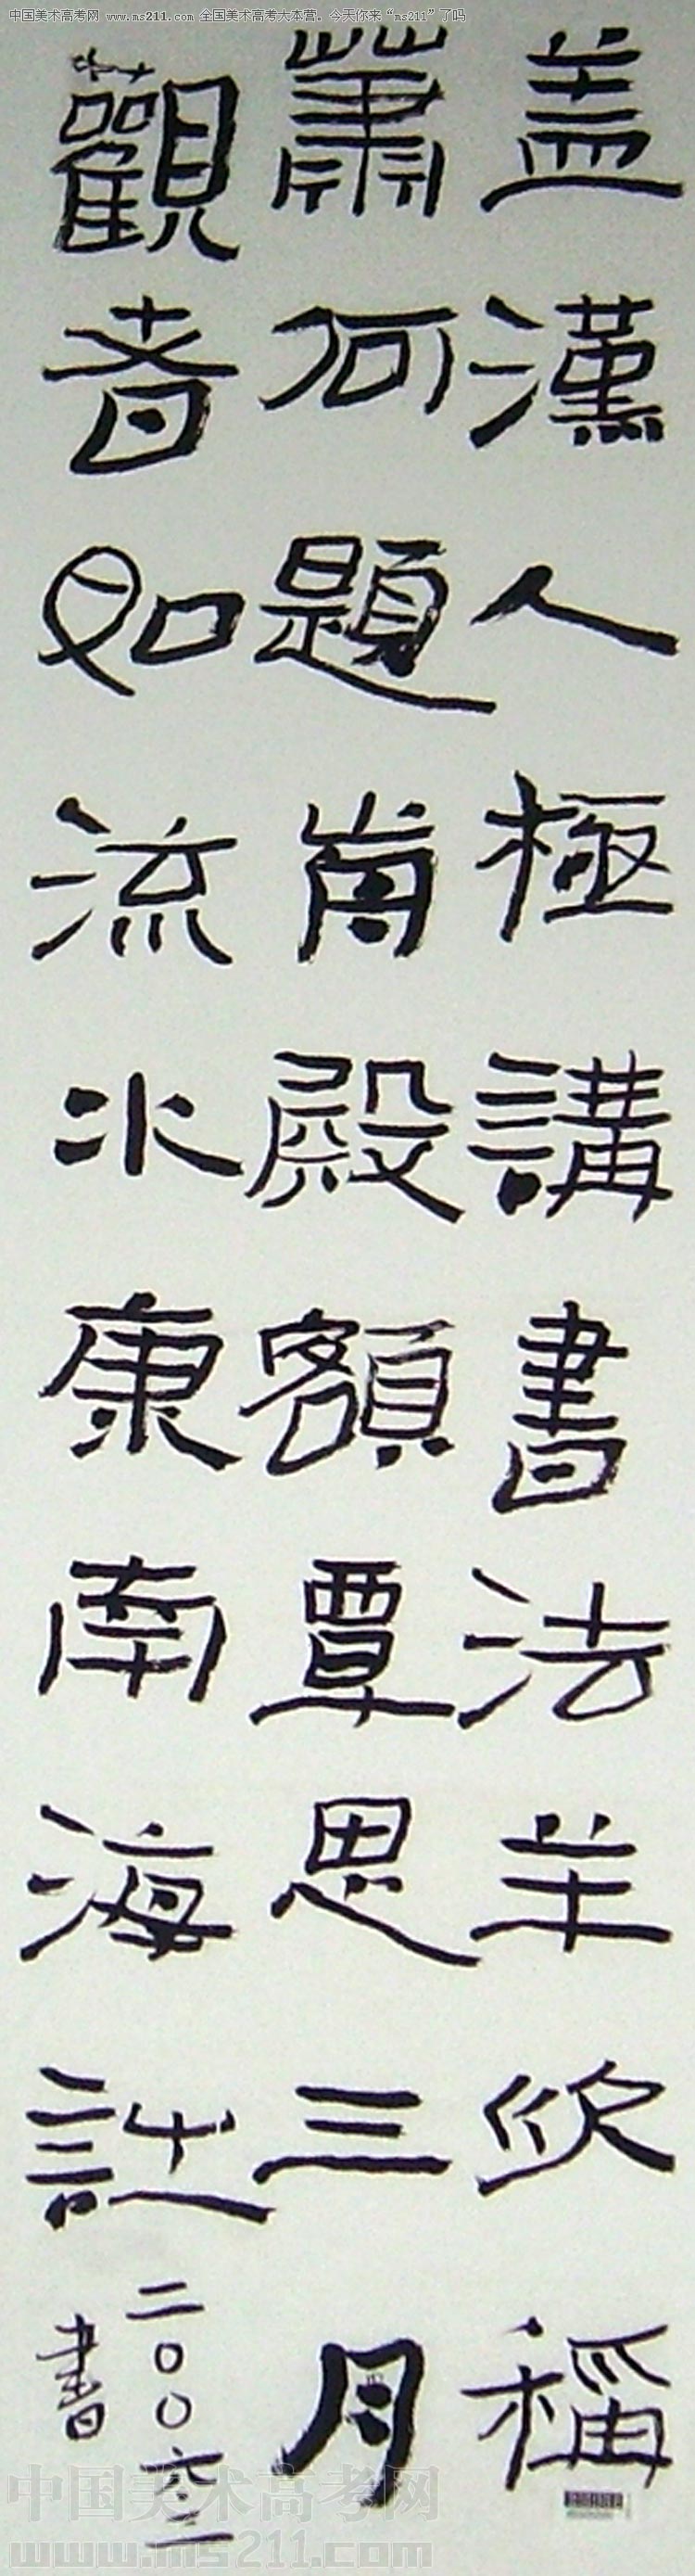 中国美术高考网 www.ms211.com 全国美术高考大本营。今天你来“ms211”了吗
盖漢人極講書法羊欣稱
蕭何題前殿額覃思三月
觀者如流水康南海語
二〇〇六二
書
中国美术高考网
www.ms211.com